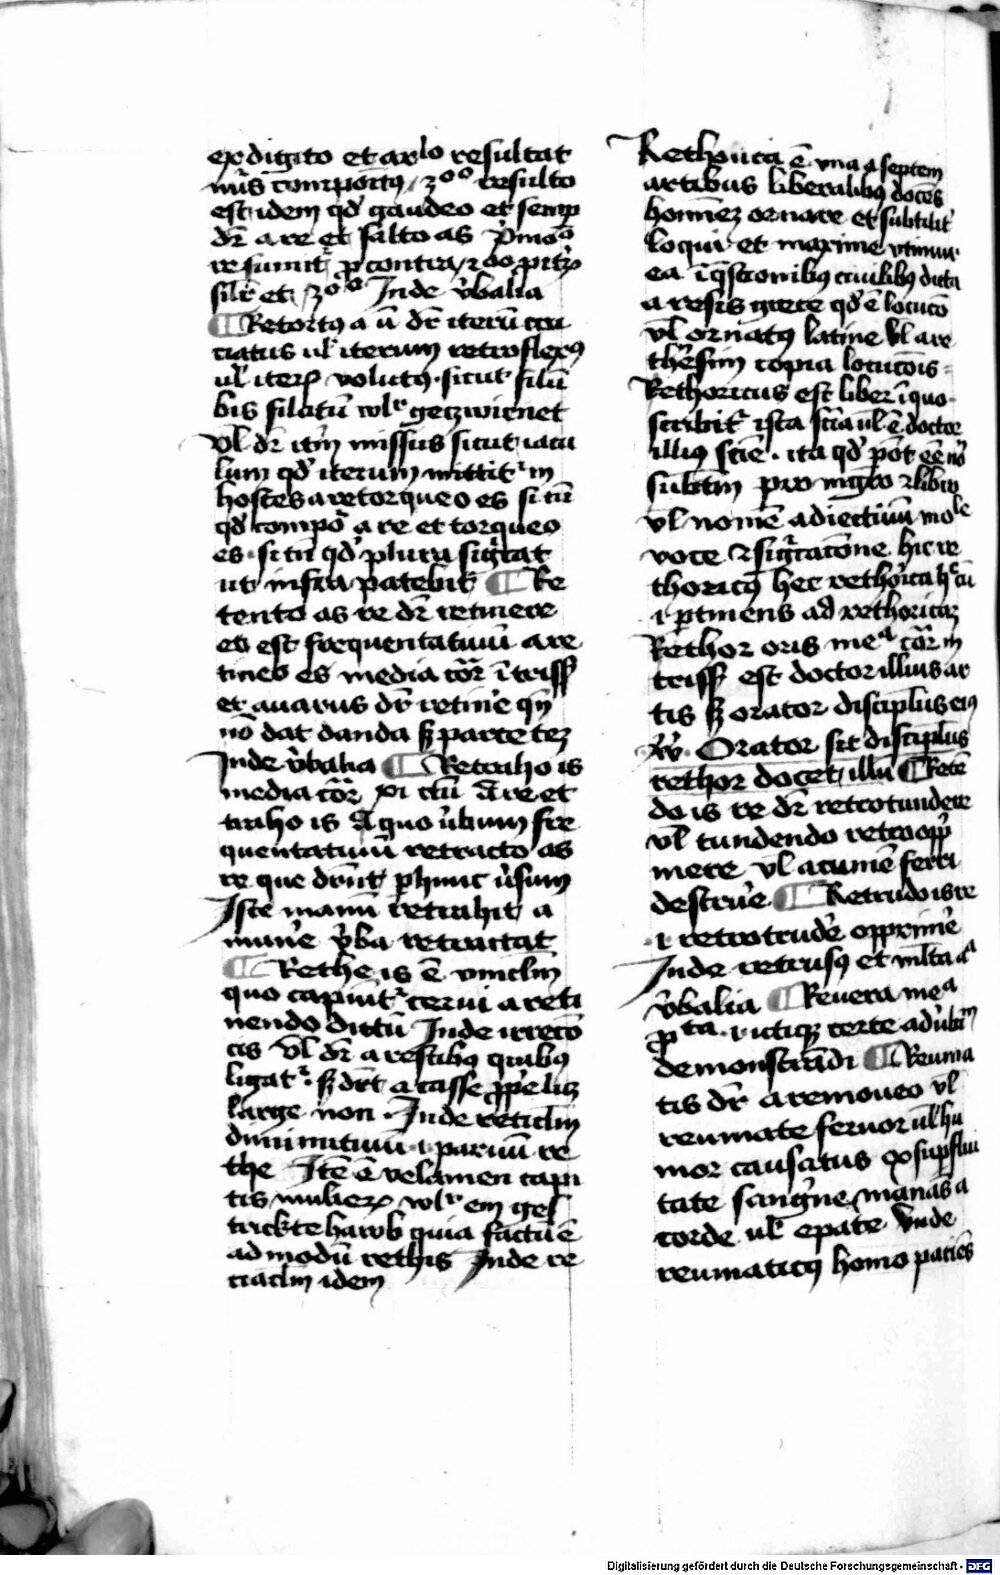 ex digito et ar᷑lo resultat
nūs comportꝯ / 3ᵒᵒ resulto
est idem qd̛ gaudeo et semp
dr̄ a re et salto as p̄moᵒ
resumitᷣ p contra / ⁊
silr̄ et 3ᵒᵒ Inde v̛balia
Retortꝯ a ū dr̄ iterū cru
ciatus ul̛ iterum retroflexꝯ
ul̛ iterꝝ volutꝯ · sicut filū
bis filatū wlr̄ gezwirnet
vl̛ dr̄ itm̄ missus sicut iacu
lum qd̛ iterum mittitᷣ in
hostes a retorqueo es si tū
qd̛ compoᷣ a re et torqueo
es · si tū qd̛ plura sigᷓt
ut infra patebit Re
tento as re dr̄ retinere
es est frequentatiuū a re
tineo es media cōr ī triss̄
et auarus dr̄ retine᷑ qn̄
nō dat danda sꝫ parce teꝫ
Inde v̛balia Retraho is
media cōr xi ctū a re et
traho is a quo v̛bum fre
quentatiuū retracto as
re que dr̄nt p hunc v̛sum
Iste manū retrahit a
mune᷑ v̛ba retractat
Rethe is ē vinclm̄
quo capiūtᷣ cerui a reti
nendo dictū Inde irreto᷑
tis vl̛ dr̄ a restibꝯ quibꝯ
ligatᷣ · sꝫ dr̄t a casse pp̄e liꝫ
large non · Inde reticlm̄
diminutiuū · i · paruū re
the Itē ē velamen capi
tis mulierꝝ wlr̄ em ges
trickte hawb quia factū ē
ad modū rethis Inde re
ciaclm̄ idem
Rethorica ē vna a septem
artibus liberalibꝯ docēs
hominēꝫ ornare et subtilit᷑
loqui et maxime vtimurᷣ
ea ī qstionibꝯ ciuilibꝯ dicta
a resis grece qd̛ ē locucō
vl̛ ornatꝯ latine vl̛ a re
thesim copia locucōis
Rethoricus est liber ī quo
scribitᷣ ista scīa ul̛ ē doctor
illiꝯ scīe · ita qd̛ pōt eē nō
subitm̄ pro mgrō ⁊ libro
vl̛ nomē adiectiuū moᵇˡᵉ
voce ⁊ sigᷓtacōne hic re
thoricꝯ hec rethorica hᶜ cū
· i · ptinens ad rethoricaꝫ
Rethor oris meᵃ cōr in
triss̄ est doctor illius ar
tis sꝫ orator discipl̄us eiꝯ
vꝰ · Orator sit discipl̄us
rethor docet illū Retē
do is re dr̄ retrotundere
vl̛ tundendo retro opp̄
mere vl̛ acumē ferri
destrue᷑ Retrudo is re
· i · retrotrude᷑ opprime᷑
Inde retrusꝯ et ml̄ta aᵃ
v̛balia Revera meᵃ
pᵗᵃ · i · utiqꝫ certe adūbm̄
demonstrādi Reuma
tis dr̄ a remoueo vl̛
reumate feruor ul̛ hu
mor causatus ex supflui
tate sangᷓne manās a
corde ul̛ epate Vnde
reumaticꝯ homo paciēs
Digitalisierung gefördert durch die Deutsche Forschungsgemeinschaft - DFG